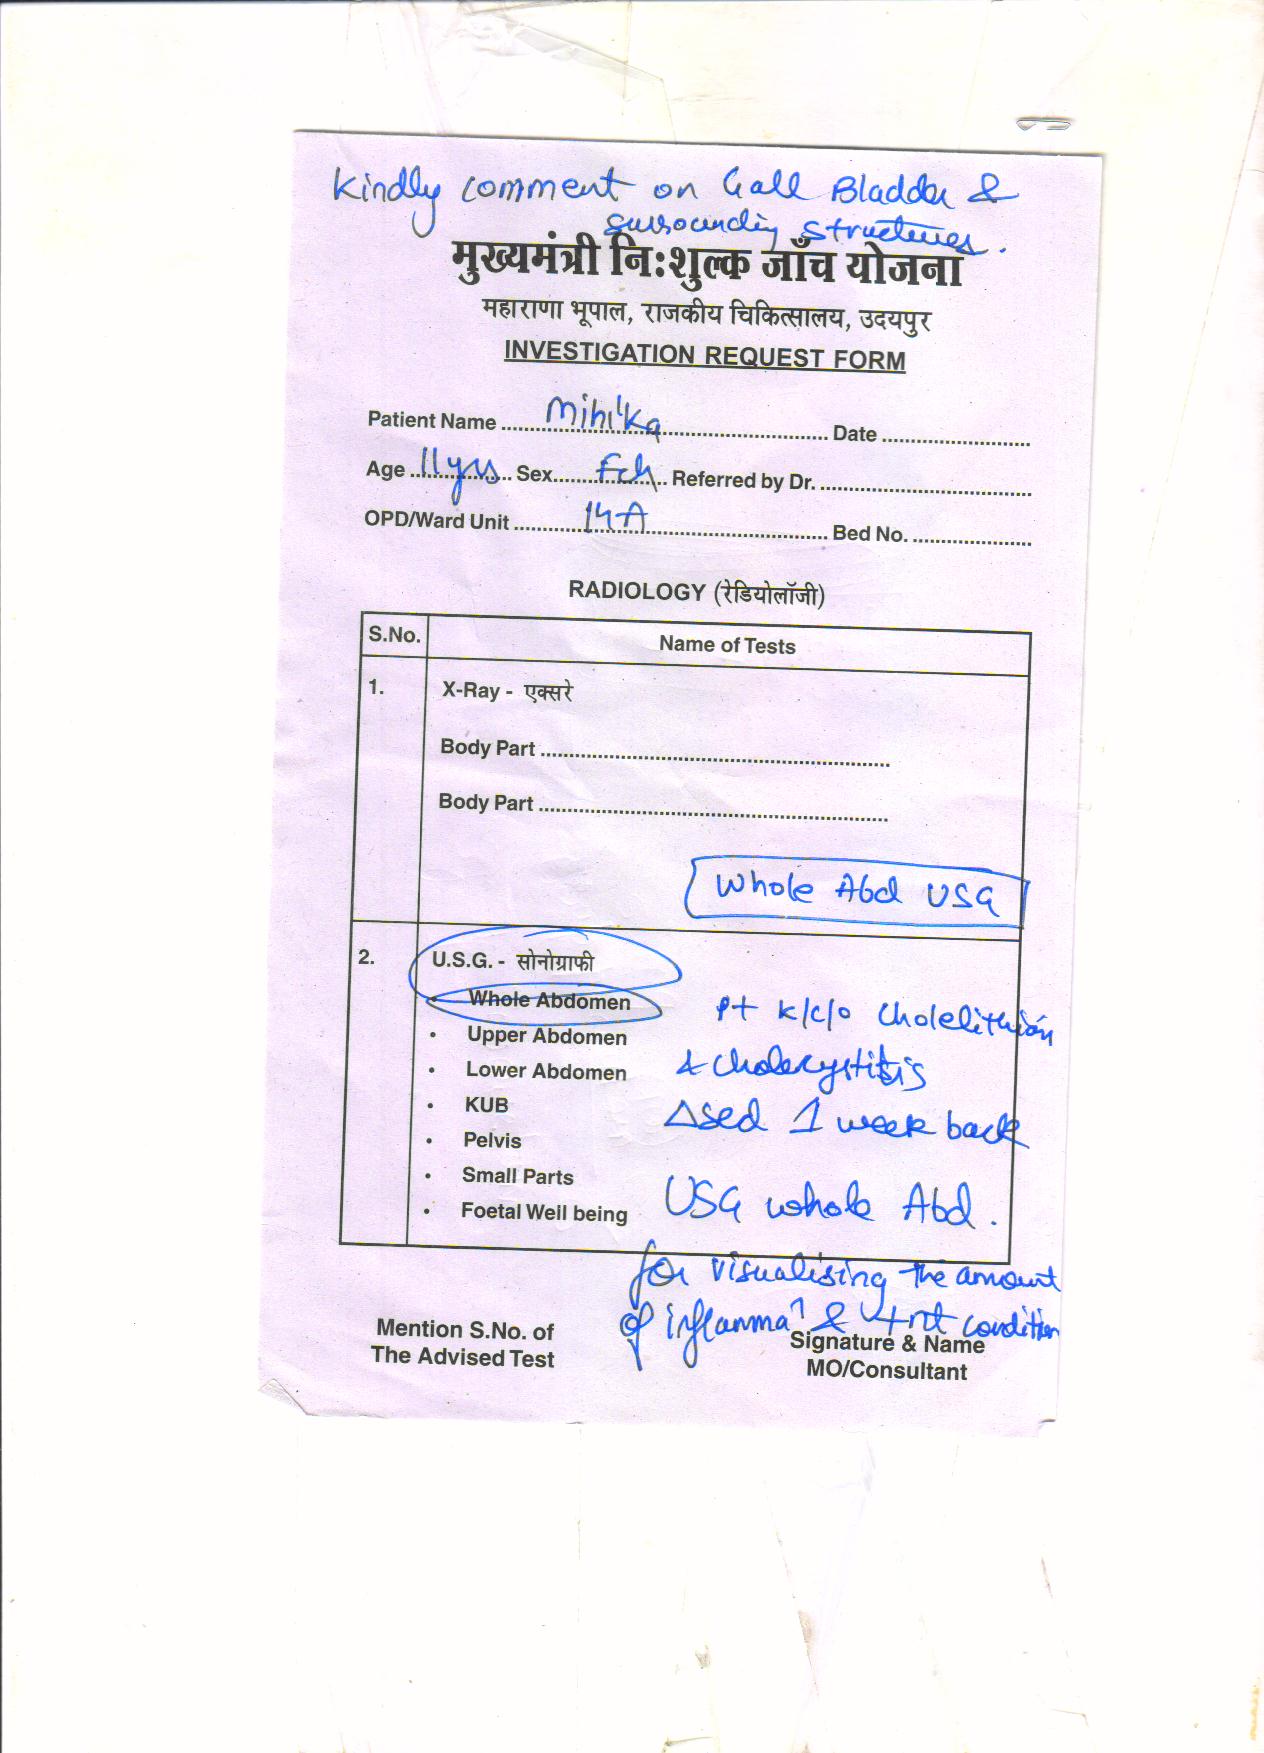 Kindly comment on Gall Bladder &
surrounding structures.
मुख्यमंत्री नि:शुल्क जाँच योजना
महाराणा भूपाल, राजकीय चिकित्सालय, उदयपुर
INVESTIGATION REQUEST FORM
Patient Name Mihika Date
Age 11 yrs Sex Fch Referred by Dr.
OPD/Ward Unit 14A Bed No.
RADIOLOGY (रेडियोलॉजी)
S.No. Name of Tests
1. X-Ray - एक्सरे
Body Part
Body Part
Whole Abd USG
2. U.S.G. - सोनोग्राफी
• Whole Abdomen
• Upper Abdomen
• Lower Abdomen
• KUB
• Pelvis
• Small Parts
• Foetal Well being
Pt k/c/o Cholelithi
& cholecystitis
∆sed 1 week back
USG whole Abd.
for visualising the amount
of inflamma & condition
Mention S.No. of
The Advised Test
Signature & Name
MO/Consultant